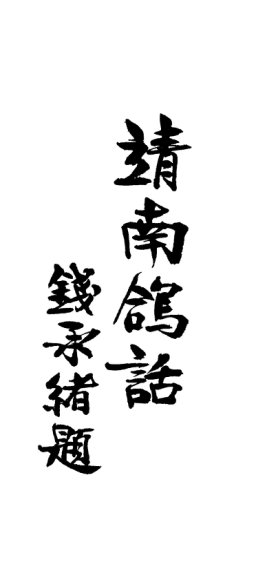 靖南鴿話
錢承緒題